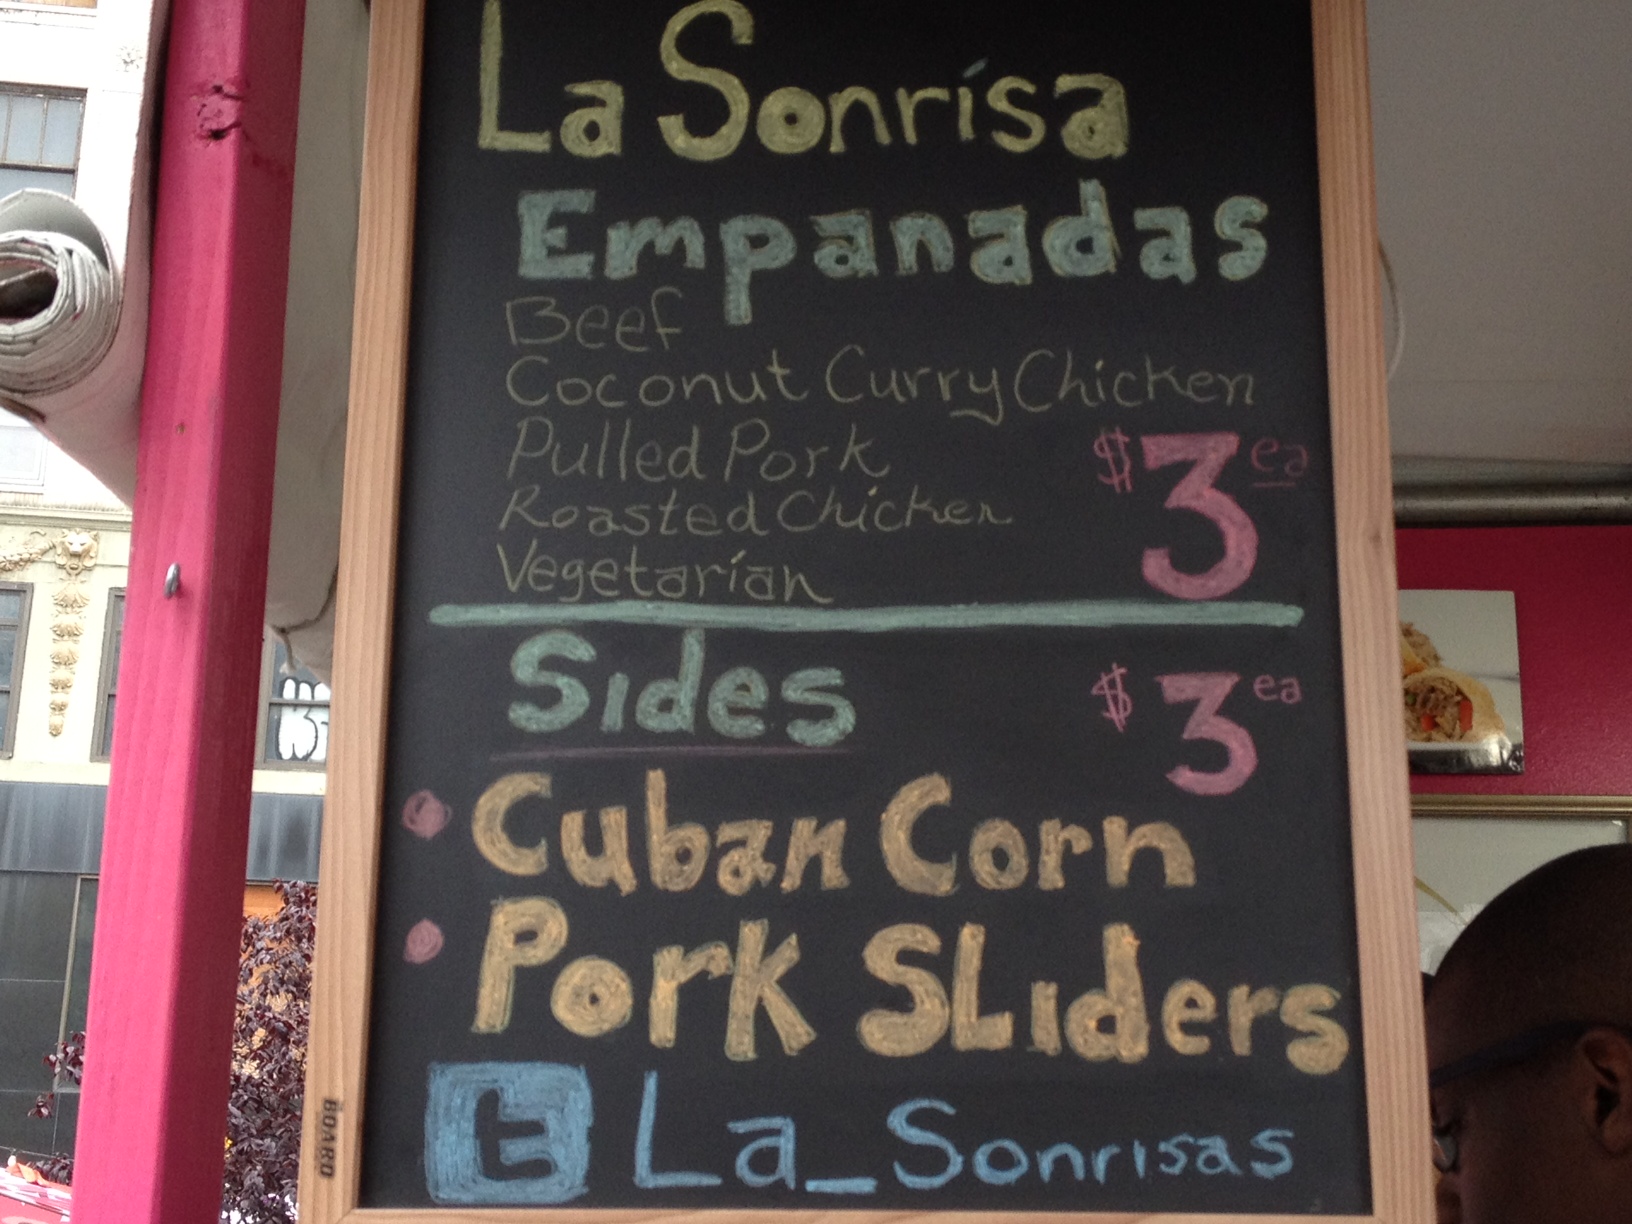 La Sonrisa
Empanadas
Beef
Coconut Curry Chicken
Pulled Pork
Roasted Chicken
Vegetarian
$3 ea
Sides $3 ea
Cuban Corn
Pork SLiders
t La_Sonrisas
BOARD